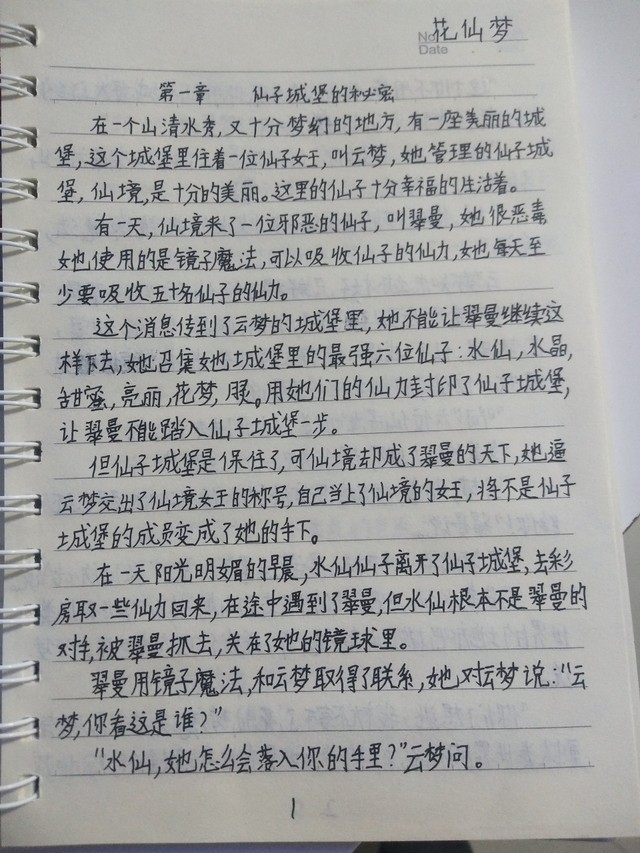 花仙梦
No.
Date
第一章 仙子城堡的秘密
在一个山清水秀,又十分梦幻的地方,有一座美丽的城
堡,这个城堡里住着一位仙子女王,叫云梦,她管理的仙子城
堡,仙境,是十分的美丽。这里的仙子十分幸福的生活着。
有一天,仙境来了一位邪恶的仙子,叫翠曼,她很恶毒
她使用的是镜子魔法,可以吸收仙子的仙力,她每天至
少要吸收五十名仙子的仙力。
这个消息传到了云梦的城堡里,她不能让翠曼继续这
样下去,她召集她城堡里的最强六位仙子:水仙,水晶,
甜蜜,亮丽,花梦,用她们的仙力封印了仙子城堡,
让翠曼不能踏入仙子城堡一步。
但仙子城堡是保住了,可仙境却成了翠曼的天下,她逼
云梦交出了仙境女王的称号,自己当上了仙境的女王,将不是仙子
城堡的成员变成了她的手下。
在一天阳光明媚的早晨,水仙仙子离开了仙子城堡,去彩
房取一些仙力回来,在途中遇到了翠曼,但水仙根本不是翠曼的
对手,被翠曼抓去,关在了她的镜球里。
翠曼用镜子魔法,和云梦取得了联系,她对云梦说:“云
梦,你看这是谁?”
“水仙,她怎么会落入你的手里?”云梦问。
1